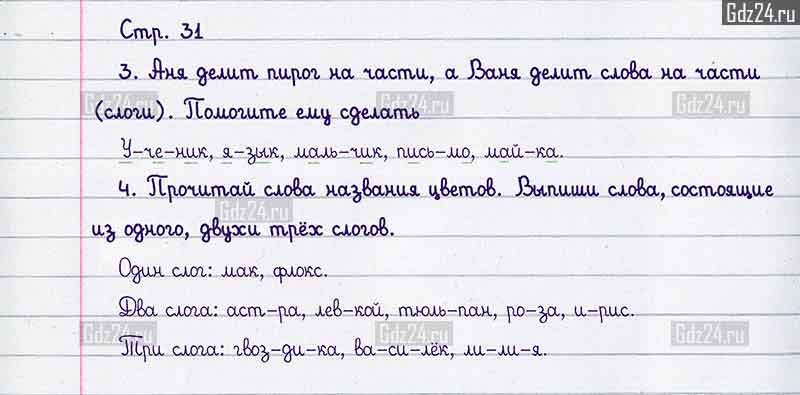 Gdz24.ru
Стр. 31
3. Аня делит пирог на части, а Ваня делит слова на части
(слоги). Помогите ему сделать
Gdz24.ru Gdz24.ru Gdz24.ru
У-че-ник, я-зык, маль-чик, пись-мо, май-ка.
4. Прочитай слова названия цветов. Выпиши слова, состоящие
Gdz24.ru
из одного, двухи трёх слогов.
Один слог: мак, флокс.
Два слога: аст-ра, лев-кой, тюль-пан, ро-за, и-рис.
Gdz24.ru Gdz24.ru Gdz24.ru
Три слога: гвоз-ди-ка, ва-си-лёк, ли-ли-я.